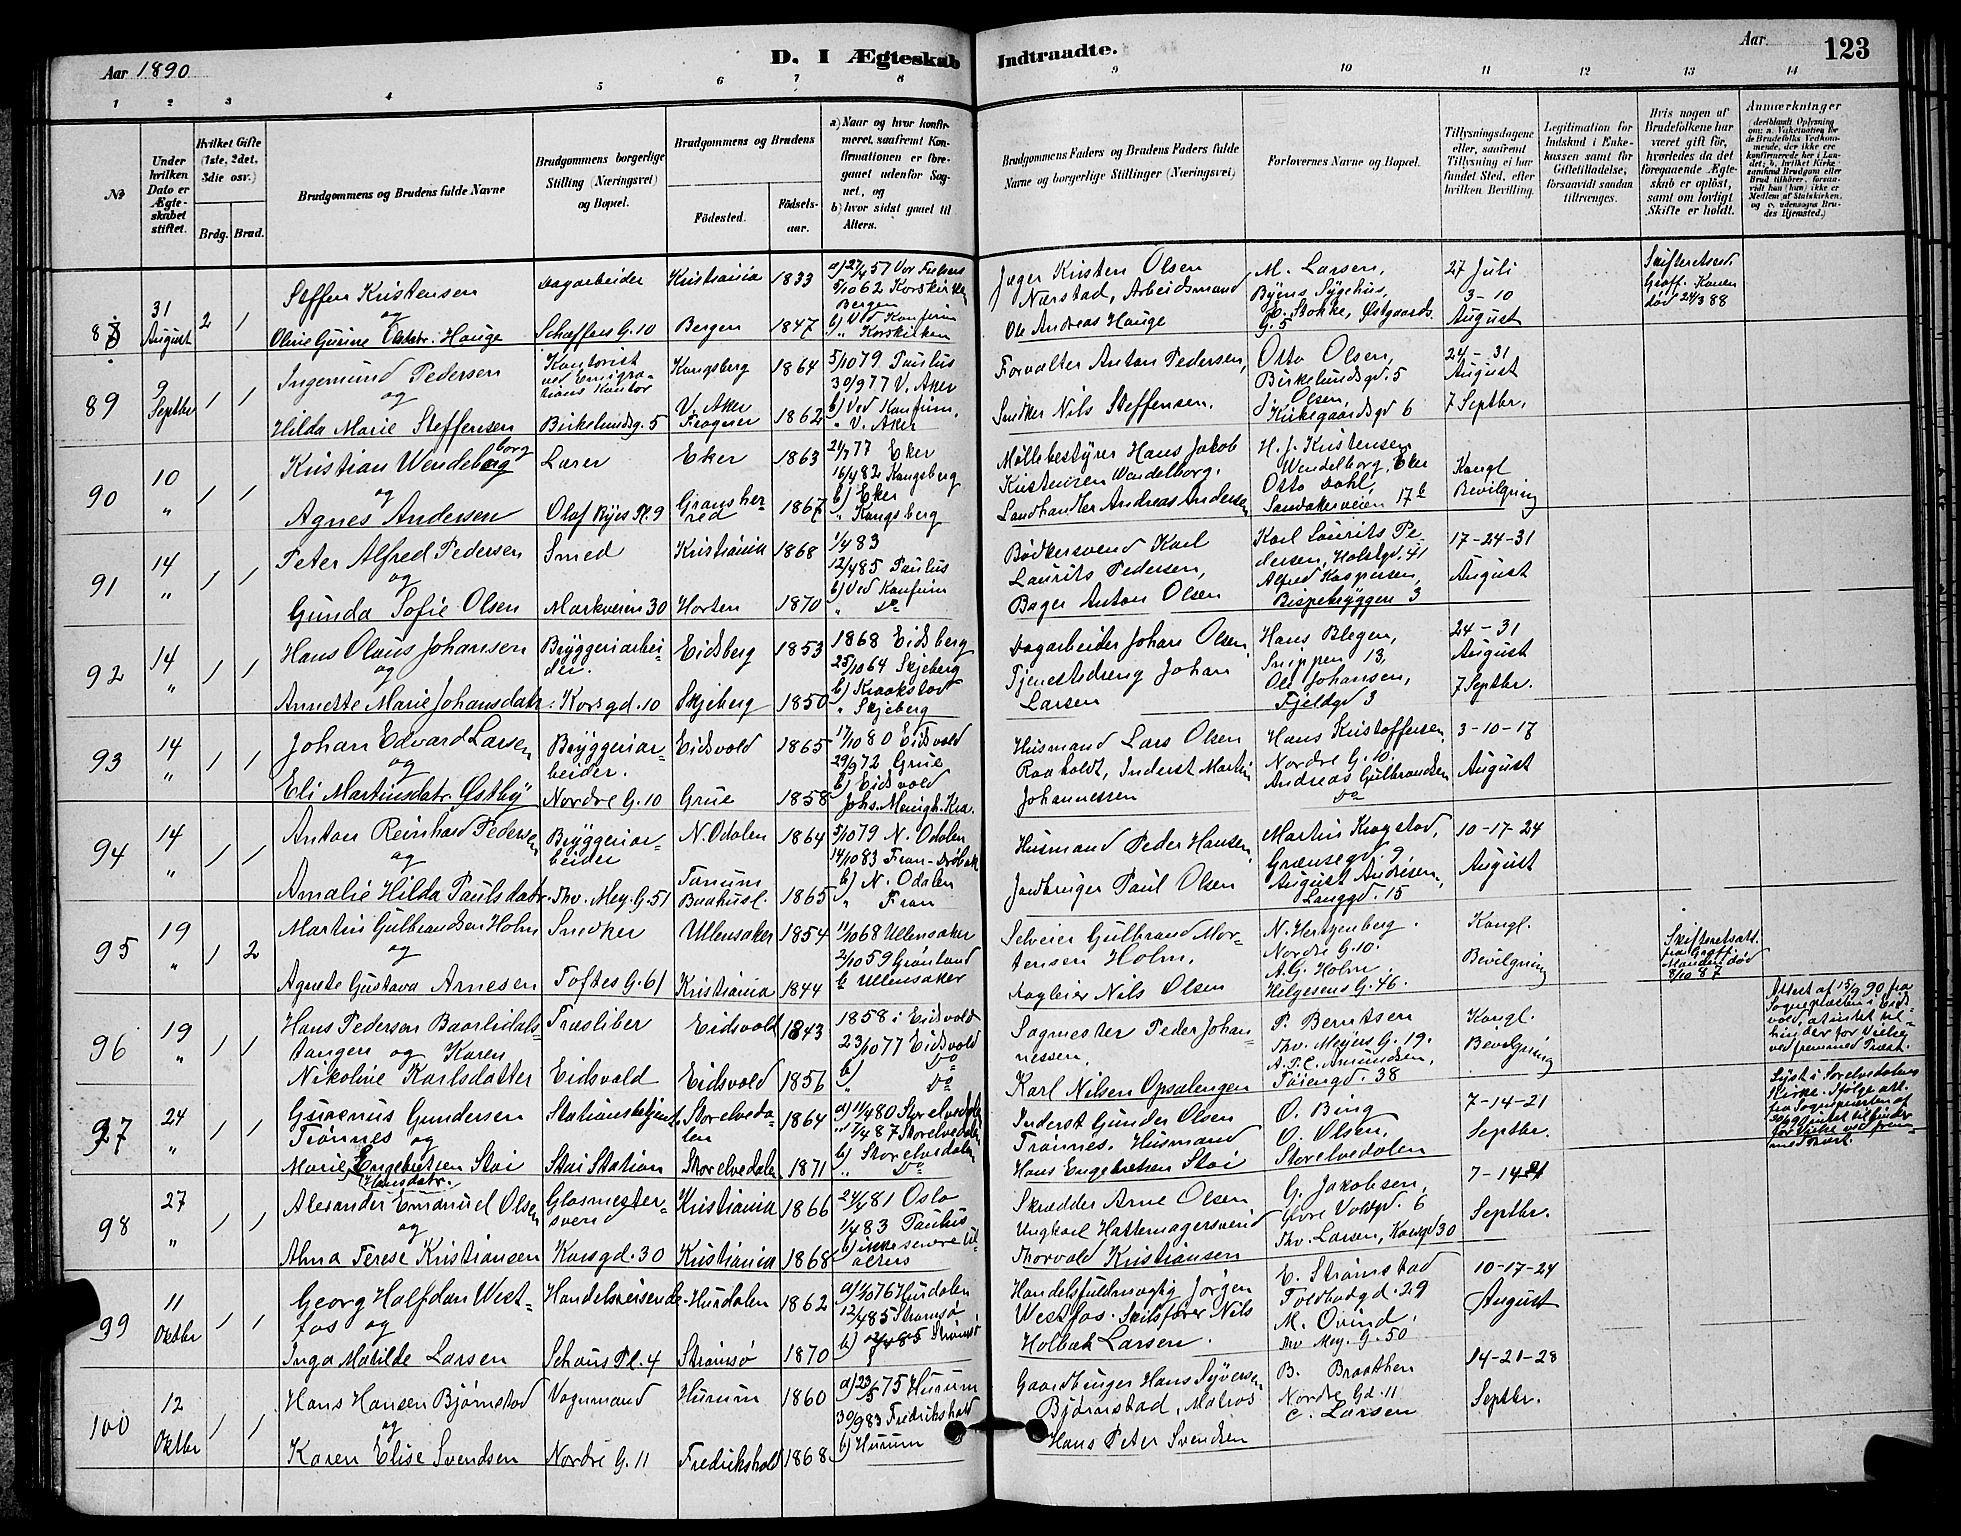 Aar 1890
D. I Ægteskab Indtraadte.
Aar
123
1 2 3 4 5 6 7 8 9 10 11 12 13 14
No
Under hvilken Dato er Ægteskabet stiftet.
Hvilket Gifte (1ste, 2det, 3die osv.)
Brdg. Brud.
Brudgommens og Brudens fulde Navne
Brudgommens borgerlige Stilling (Næringsvei) og Bopæl.
Brudgommens og Brudens
Födested.
Födsels-aar.
a) Naar og hvor konfirmeret, saafremt Konfirmationen er foregaaet udenfor Sognet, og
b) hvor sidst gaaet til Alters.
Brudgommens Faders og Brudens Faders fulde Navne og borgerlige Stillinger (Næringsvei)
Forlovernes Navne og Bopæl.
Tillysningsdagene eller, saafremt Tillysning ei har fundet Sted, efter hvilken Bevilling.
Legitimation for Indskud i Enkekassen samt for Giftetilladelse, forsaavidt saadan tiltrænges.
Hvis nogen af Brudefolkene har været gift för, hvorledes da det foregaaende Ægteskab er oplöst, samt om lovligt Skifte er holdt.
Anmærkninger
88 31 August 2 1
Steffen Kristensen Dagarbeider Kristiania 1833
og
Oline Gurine Olsdtr. Hauge Schaffers G. 10 Bergen 1847
a) 27/4 57 Vor Frelsers
5/10 62 Korskirken Bergen
b) Ved Konfirm
" Korskirken
Jæger Kristen Olsen
Nærstad, Arbeidsmand
Ole Andreas Hauge
M. Larsen,
Byens Sygehus,
Stokke, Østgaards G. 5
27 Juli
3-10
August
Skifteretsatt.
Kraft. Konen
død 24/3 88
89 9 Septbr 1 1
Ingemund Pedersen Kontorist ved Emigrationskontor Kongsberg 1864
og
Hilda Marie Steffensen Birkelundsg. 5 V. Aker Frogner 1862
5/10 79 Paulus
30/9 77 V. Aker
b) Ved Konfirm.
" V. Aker
Forvalter Anton Pedersen,
Snedker Nils Steffensen.
Otto Olsen,
Birkelundsgd. 5
J. Olsen,
Kirkegaardsgd 6
24-31
August
7 Septbr,
90 10 " 1 1
Kristian Wendelborg Lærer Eker 1863
og
Agnes Andersen Olaf Ryes Pl. 9 Gransherred 1867
21/7 77 Eker
16/4 82 Kongsberg
b) Eker
" Kongsberg
Møllebestyrer Hans Jakob
Kristensen Wendelborg.
Landhandler Andreas Andersen
H. J. Kristensen
Wendelborg, Eker
Otto Dahl,
Sandakerveien 17 b
Kongl
Bevilgning
91 14 " 1 1
Peter Alfred Pedersen Smed Kristiania 1868
og
Gunda Sofie Olsen Markveien 30 Horten 1870
1/4 83
12/4 85 Paulus
b) Ved Konfirm
" Do
Bødkersvend Karl
Laurits Pedersen,
Bager Anton Olsen
Karl Laurits Pedersen, Holstgd. 41
Alfred Kaspersen,
Bispebryggen 3
17-24-31
August
92 14 " 1 1
Hans Olaus Johansen Bryggeriarbeider. Eidsberg 1853
og
Annette Marie Johansdatr. Korsgd. 10 Skjeberg 1850
1868 Eidsberg
25/10 64 Skjeberg
b) Kraakstad
" Skjeberg
Dagarbeider Johan Olsen,
Tjenestedreng Johan
Larsen
Hans Blegen,
Snippen 13,
Ole Johansen,
Fjeldgd 3
24-31
August
7 Septbr.
93 14 " 1 1
Johan Edvard Larsen Bryggeriarbeider. Eidsvold 1865
og
Eli Martinsdatr. Østby Nordre G. 10 Grue 1858
17/10 80 Eidsvold
29/9 72 Grue
b) Eidsvold
Johs. Menigh. Kra.
Husmand Lars Olsen
Raaholdt, Inderst Martin
Johannessen
Hans Kristoffersen
Nordre G. 10.
Andreas Gulbrandsen
Do
3-10-17
August
94 14 " 1 1
Anton Reinhard Pedersen Bryggeriarbeider N. Odalen 1864
og
Amalie Hilda Paulsdatr. Thv. Mey. G. 51 Tanum Baahusl. 1865
5/10 79 N. Odalen
14/10 83 Fron-Drøbak
b) N. Odalen
" Fron
Husmand Peder Hansen,
Jordbruger Paul Olsen
Martin Krogstad,
Grænsegd. 9
August Andresen,
Langgd. 15
10-17-24
August
95 19 " 1 2
Martin Gulbrandsen Holm Snedker Ullensaker 1854
og
Agnete Gustava Arnesen Toftes G. 61 Kristiania 1844
11/10 68 Ullensaker
2/10 59 Grønland
b Ullensaker
Selveier Gulbrand Mortensen Holm.
Fagleier Nils Olsen
N. Hertzenberg.
Nordre G. 10.
A. G. Holm.
Helgesens G. 46.
Kongl.
Bevilgning
Skifteretsatt.
Manden død
8/10 87
96 19 " 1 1
Hans Pedersen Baarlidalstangen og Karen Træsliber Eidsvold 1843
Nikoline Karlsdatter Eidsvold Eidsvold 1856
1858 i Eidsvold
23/10 77 Eidsvold
b) Do
" Do
Sagmester Peder Johannessen
Karl Nilsen Opsalengen
P. Berntsen
Thv. Meyers G. 19.
A. P. C. Amundsen,
Tøiengd. 38
Kongl.
Bevilgning
Attest af 15/9 90 fra
Sognepræsten i Eidsvold, at intet tilhinder for Vielse
ved fremmed Præst.
97 24 " 1 1
Gunenus Gundersen Stationsbetjent Storelvedalen 1864
Trønnes og
Marie Engebretsen Stai Stai Station Storelvedalen 1871
Hansdatr.
a) 11/4 80 Storelvedalen
" 17/4 87 Storelvedalen
b) Storelvedalen
" Do
Inderst Gunder Olsen
Trønnes, Husmand
Hans Engebretsen Stai
O. Bing
O. Olsen,
Storelvedalen
7-14-21
Septbr.
Lyst i Storelvedalens
Kirke. Ifølge att.
fra Sognepræsten af
98 27 " 1 1
Alexander Emanuel Olsen Glasmestersvend Kristiania 1866
og
Alma Terese Kristiansen Korsgd. 30 Kristiania 1868
24/4 81 Oslo
1/4 83 Paulus
b) ikke senere til
alters
Skrædder Arne Olsen
Ungkarl Hattemagersvend
Thorvald Kristiansen
G. Jakobsen,
Øvre Voldgd. 6
Thv. Larsen, Korsgd 30
7-14-21
Septbr.
99 11 Oktbr 1 1
Georg Halfdan Westfos og Handelsreisende Hurdalen 1862
Inga Matilde Larsen Schous Pl. 4 Strømsø 1870
a) 1/10 76 Hurdalen
12/4 85 Strømsø
b) 12/4 85 Strømsø
Handelsfuldmægtig Jørgen
Westfos. Skibsfører Nils
Holbak Larsen.
E. Strømstad
Toldbodgd. 29
M. Ovind.
Thv Mey. G. 50
10-17-24
August
100 12 Oktbr 1 1
Hans Hansen Bjørnstad Vognmand Hurum 1860
og
Karen Elise Svendsen Nordre G. 11 Fredrikshald 1868
a) 23/5 75 Hurum
30/9 83 Fredrikshald
b) Hurum
Gaardbruger Hans Syversen
Bjørnstad, Matros
Hans Peter Svendsen
B. Braathen
Nordre Gd. 11
C. Larsen
14-21-28
Septbr.